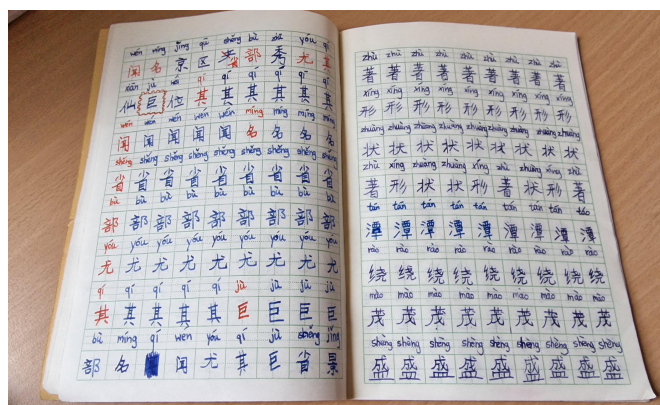 wén míng jǐng qū shěng bù xiù yóu qí
闻 名 京 区 省 部 秀 尤 其
xiān jù wèi qí qí qí qí qí
仙 巨 位 其 其 其 其 其
wén wén wén wén wén míng míng míng míng
闻 闻 闻 闻 闻 名 名 名 名
shěng shěng shěng shěng shěng shěng shěng shěng shěng
省 省 省 省 省 省 省 省 省
bù bù bù bù bù bù bù bù bù
部 部 部 部 部 部 部 部 部
yóu yóu yóu yóu yóu yóu yóu yóu yóu
尤 尤 尤 尤 尤 尤 尤 尤 尤
qí qí qí qí qí jù jù jù jù
其 其 其 其 其 巨 巨 巨 巨
bù míng qí wen yóu qí jù shěng jǐng
部 名 闻 尤 其 巨 省 景
zhù zhù zhù zhù zhù zhù zhù zhù zhù
著 著 著 著 著 著 著 著 著
xíng xíng xíng xíng xíng xíng xíng xíng xíng
形 形 形 形 形 形 形 形 形
zhuàng zhuàng zhuàng zhuàng zhuàng zhuàng zhuàng zhuàng zhuàng
状 状 状 状 状 状 状 状 状
zhù xíng zhuàng zhuàng xíng zhù zhuàng xíng zhù
著 形 状 状 形 著 状 形 著
tán tán tán tán tán tán tán tán
潭 潭 潭 潭 潭 潭 潭 潭 潭
rào rào rào rào rào rào rào rào rào
绕 绕 绕 绕 绕 绕 绕 绕 绕
mào mào mào mào mào mào mào mào mào
茂 茂 茂 茂 茂 茂 茂 茂 茂
shèng shèng shèng shèng shèng shèng shèng shèng shèng
盛 盛 盛 盛 盛 盛 盛 盛 盛